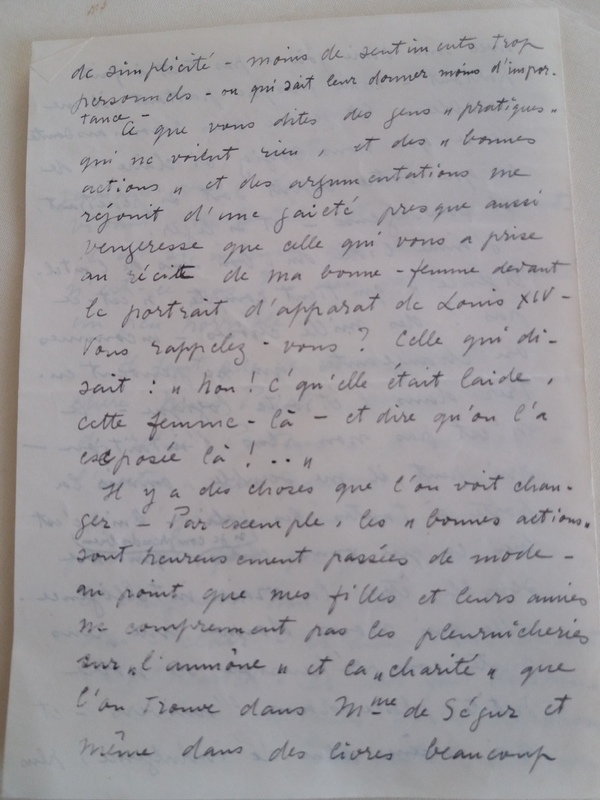 de simplicité - moins de sentiments trop
personnels - ou qui sait leur donner moins d'impor-
tance -
Ce que vous dites des gens "pratiques"
qui ne voient rien, et des "bonnes
actions" et des argumentations me
réjouit d'une gaieté presque aussi
vengeresse que celle qui vous a prise
au récit de ma bonne-femme devant
le portrait d'apparat de Louis XIV -
Vous rappelez-vous ? Celle qui di-
sait : "Non ! C'qu'elle était laide,
cette femme-là - et dire qu'on l'a
exposée là !..."
Il y a des choses que l'on voit chan-
ger - Par exemple, les "bonnes actions"
sont heureusement passées de mode -
au point que mes filles et leurs amies
ne comprennent pas les pleurnicheries
sur "l'aumône" et la "charité" que
l'on trouve dans Mme de Ségur et
même dans des livres beaucoup